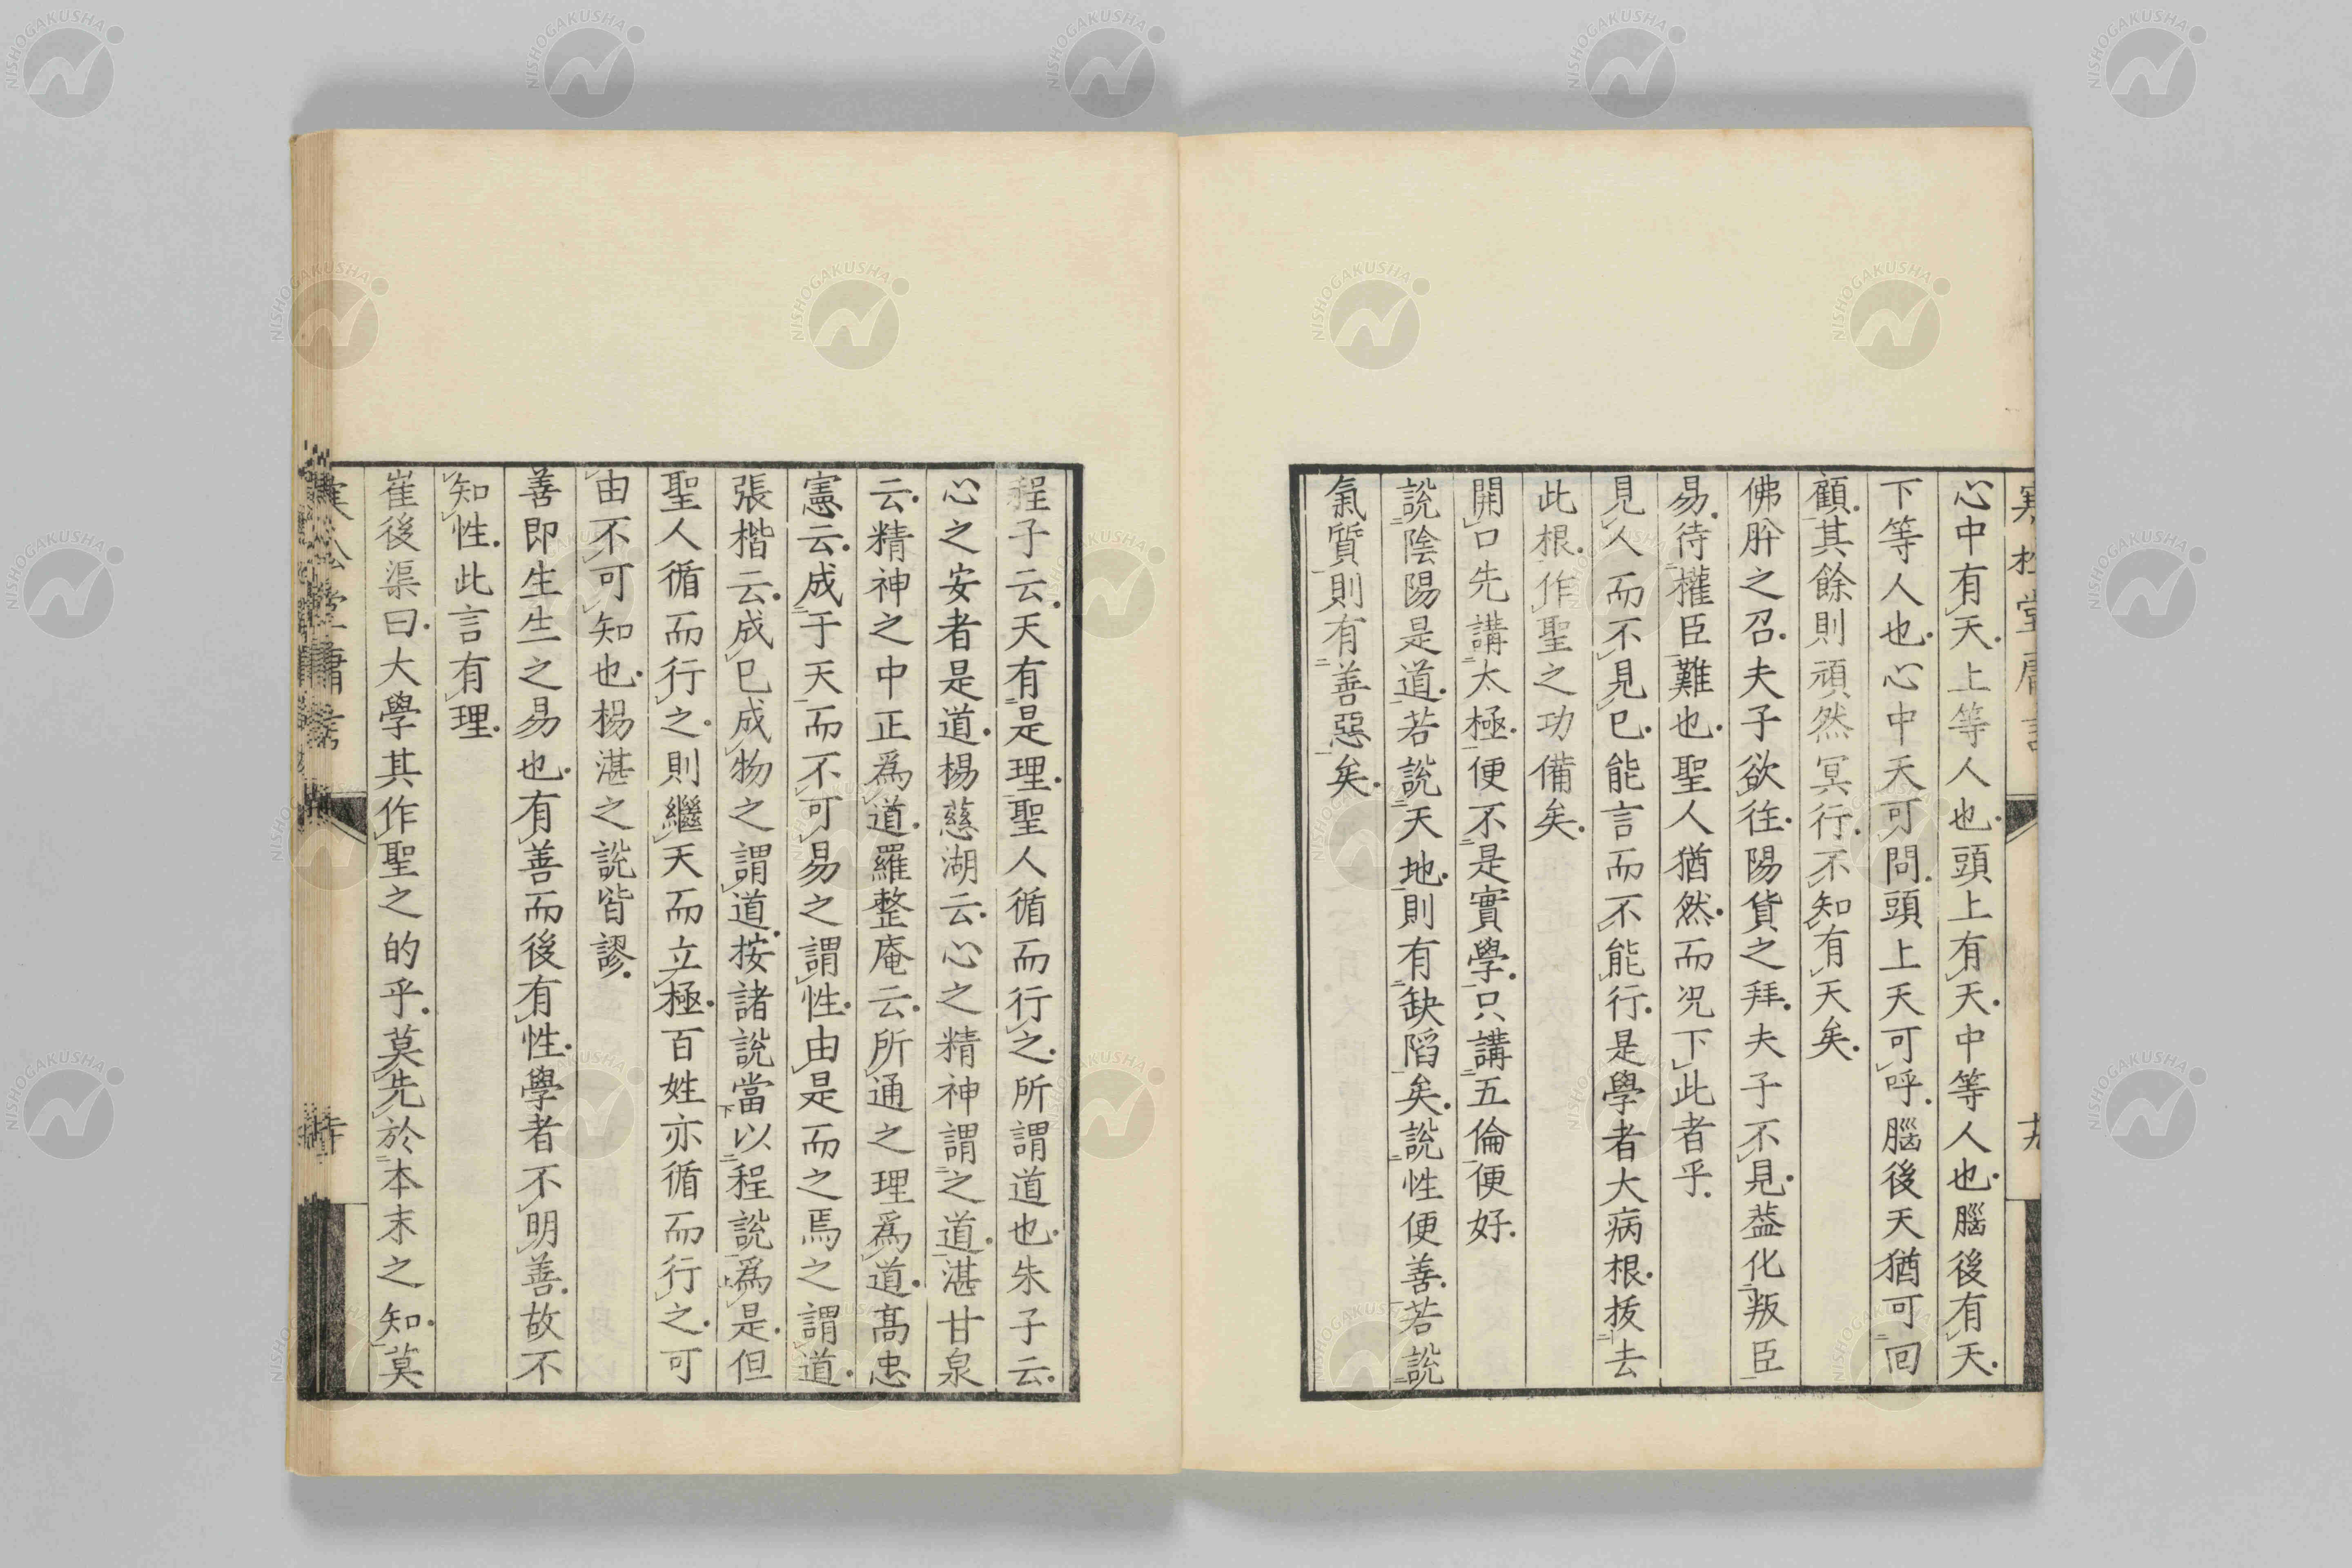 心中有天上等人也頭上有天中等人也腦後有天
下等人也心中天可問頭上天可呼腦後天猶可回
顧其餘則頑然冥行不知有天矣
佛肸之召夫子欲往陽貨之拜夫子不見葢化叛臣
易待權臣難也聖人猶然而况下此者乎
見人而不見已能言而不能行是學者大病根拔去
此根作聖之功備矣
開口先講太極便不是實學只講五倫便好
說陰陽是道若說天地則有缺陷矣說性便善若說
氣質則有善惡矣
程子云天有是理聖人循而行之所謂道也朱子云
心之安者是道楊慈湖云心之精神謂之道湛甘泉
云精神之中正爲道羅整庵云所通之理爲道高忠
憲云成于天而不可易之謂性由是而之焉之謂道
張楷云成已成物之謂道按諸說當以程說爲是但
聖人循而行之則繼天而立極百姓亦循而行之可
由不可知也楊湛之說皆謬
善即生生之易也有善而後有性學者不明善故不
知性此言有理
崔後渠曰大學其作聖之的乎莫先於本末之知莫
NISHOGAKUSHA